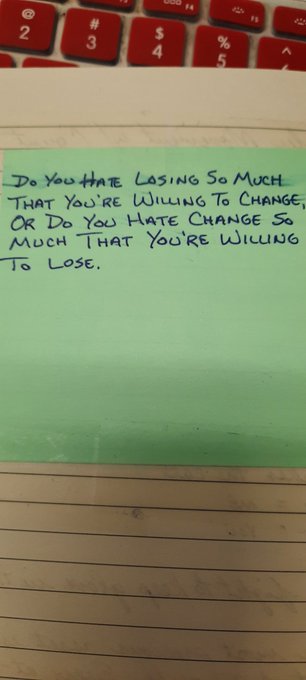 @ # $ % ^
2 3 4 5
F4 F5
DO YOU HATE LOSING SO MUCH
THAT YOU'RE WILLING TO CHANGE,
OR DO YOU HATE CHANGE SO
MUCH THAT YOU'RE WILLING
TO LOSE.